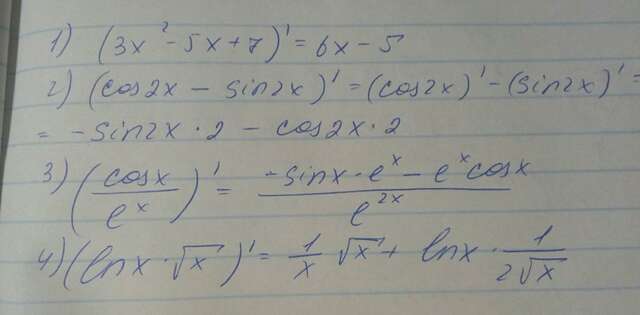 1) (3x² - 5x + 7)' = 6x - 5
2) (cos2x - sin2x)' = (cos2x)' - (sin2x)' =
= -sin2x · 2 - cos2x · 2
3) (cosx / eˣ)' = (-sinx · eˣ - eˣ cosx) / e²ˣ
4) (lnx · √x)' = 1/x √x + lnx · 1/(2√x)